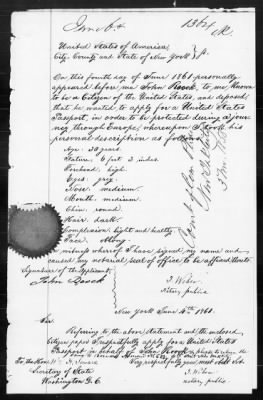 June 6th
1364
R.
United States of America
City County and State of New York } ss.
On this fourth day of June 1861 personally
appeared before me John Roock, to me known
to be a Citizen of the United States, and deposed
that he wanted to apply for a United States
Passport, in order to be protected during a jour
ney through Europe, whereupon I took his
personal description as follows:
Age: 38 years
Stature, 6 feet 2 inches
Forehead: high
Eyes: grey
Nose: medium
Mouth: medium
Chin: round
Hair: dark
Complexion: light and healthy
Face: oblong
In witness whereof I have signed my name and
caused my notarial seal of office to be affixed hereto
Signature of the Applicant
John Roock
F. Weber
Notary public
New York June 4th 1861.
Sir.
Referring to the above statement and the enclosed
Citizen papers I respectfully apply for a United States
Passport in behalf of John Roock, & please to return the
To the Hon. W. H. Seward
Very respectfully your most obdt Svt
Secretary of State
F. Weber
Washington D.C.
notary public